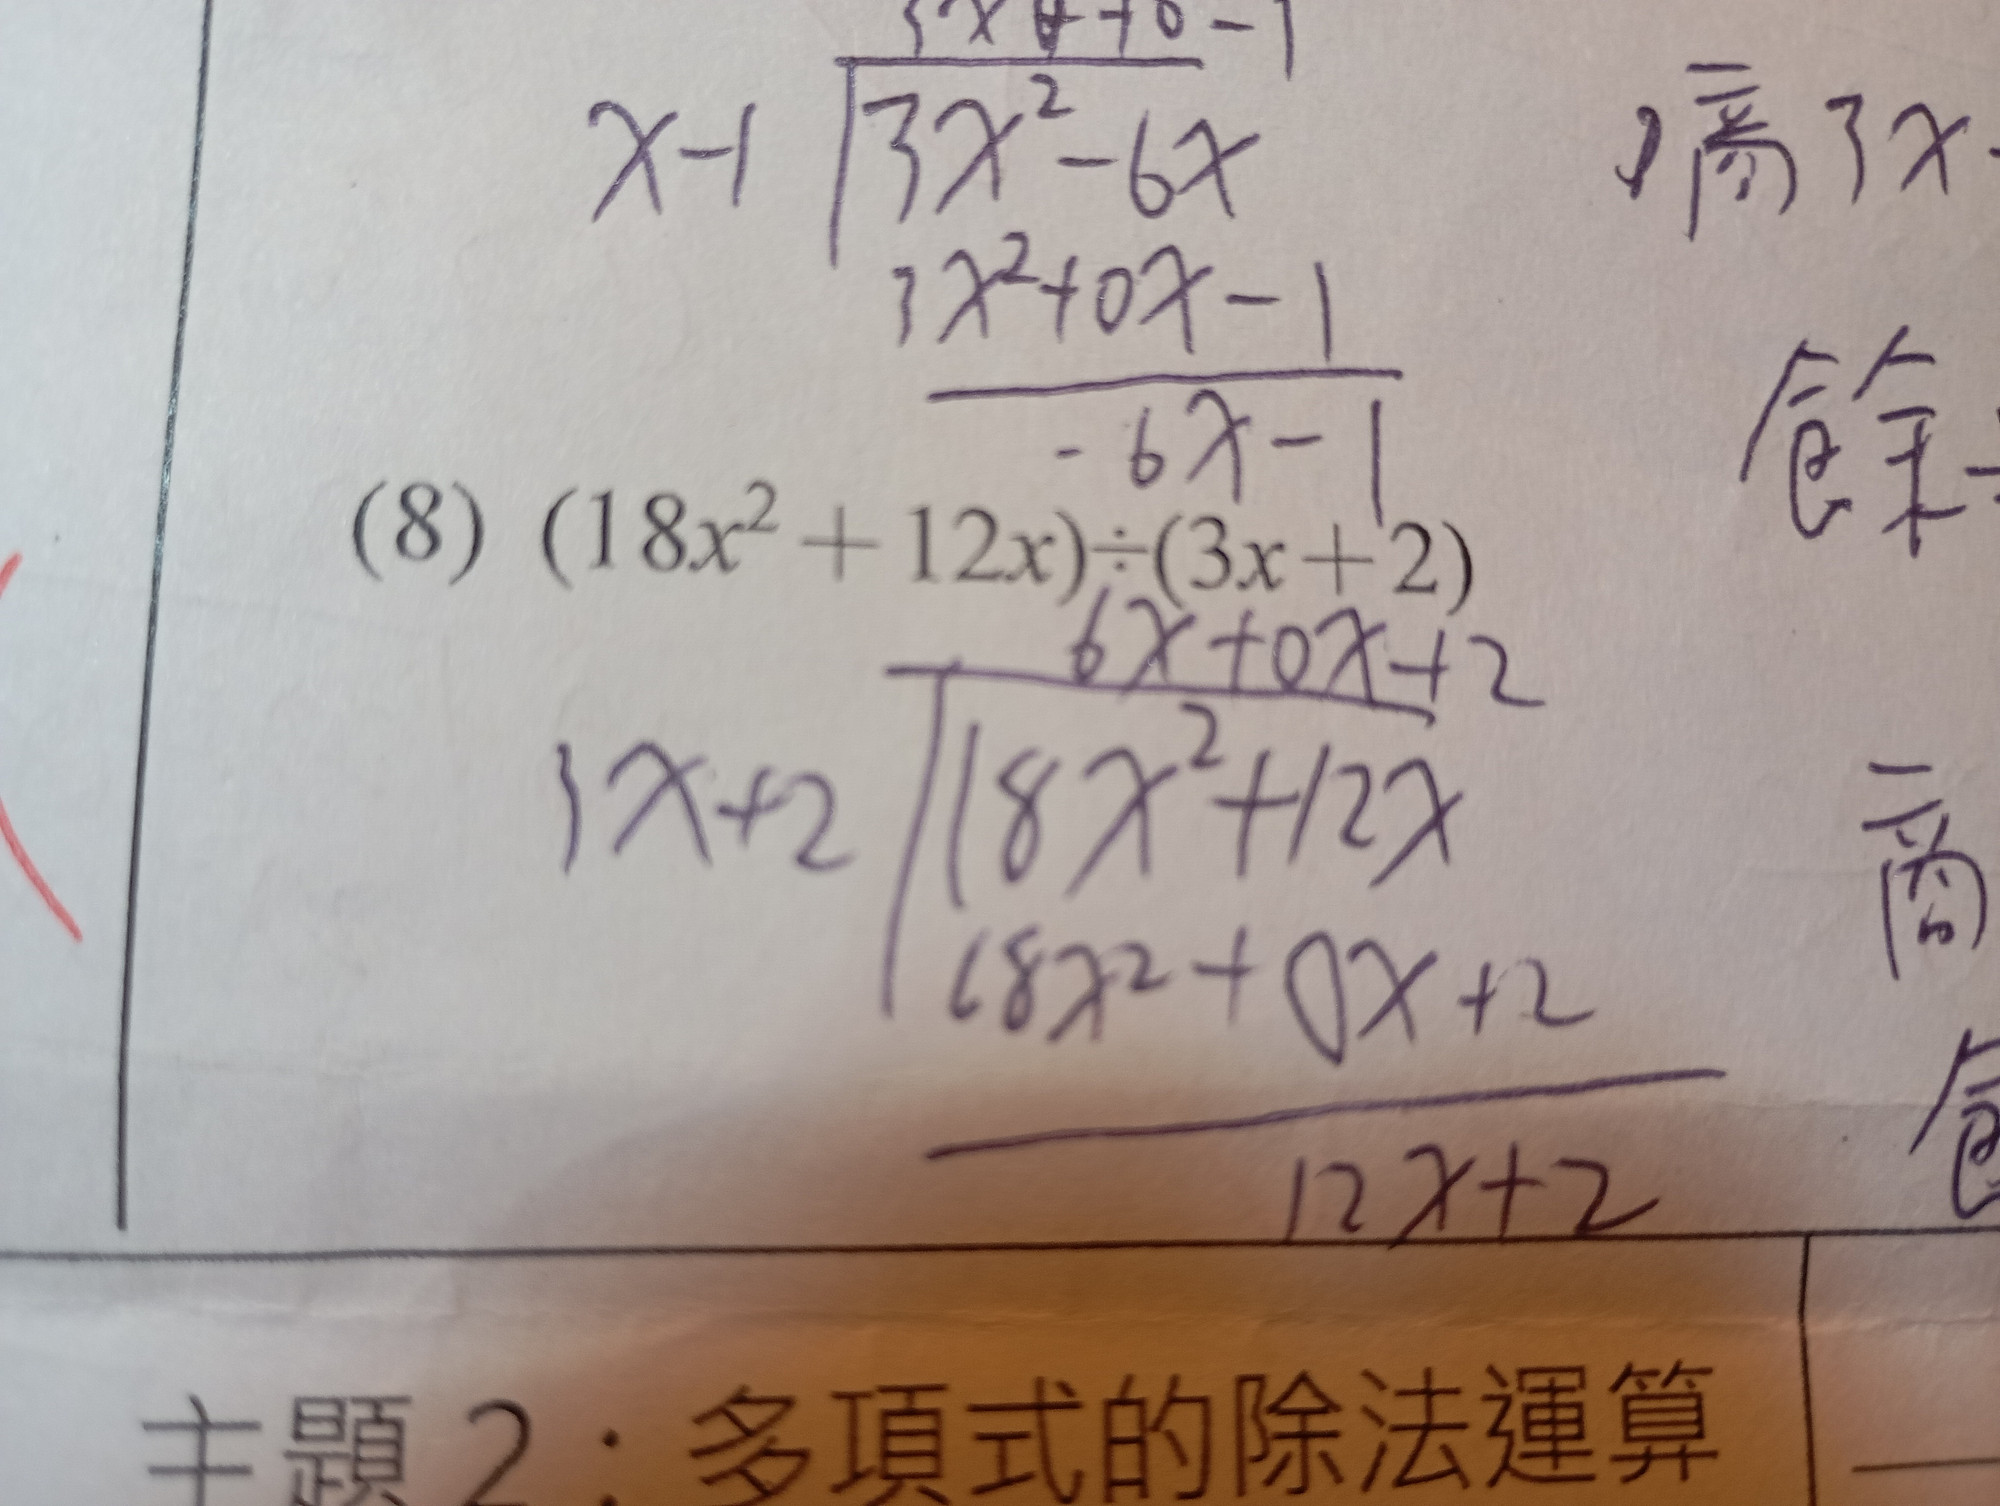 x-1 3x²-6x
商3x
3x²+0x-1
-6x-1
餘
(8) (18x²+12x)÷(3x+2)
6x+0x+2
3x+2 18x²+12x
商
18x²+0x+2
12x+2
主題2：多項式的除法運算